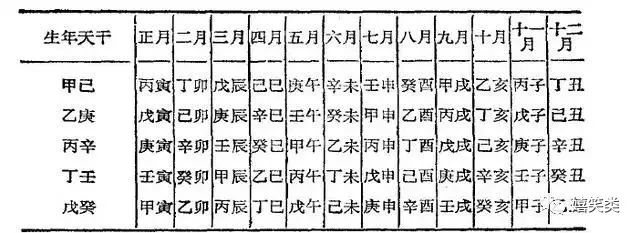 生年天干 正月 二月 三月 四月 五月 六月 七月 八月 九月 十月 十一月 十二月
甲己 丙寅 丁卯 戊辰 己巳 庚午 辛未 壬申 癸酉 甲戌 乙亥 丙子 丁丑
乙庚 戊寅 己卯 庚辰 辛巳 壬午 癸未 甲申 乙酉 丙戌 丁亥 戊子 己丑
丙辛 庚寅 辛卯 壬辰 癸巳 甲午 乙未 丙申 丁酉 戊戌 己亥 庚子 辛丑
丁壬 壬寅 癸卯 甲辰 乙巳 丙午 丁未 戊申 己酉 庚戌 辛亥 壬子 癸丑
戊癸 甲寅 乙卯 丙辰 丁巳 戊午 己未 庚申 辛酉 壬戌 癸亥 甲子
嬉笑类